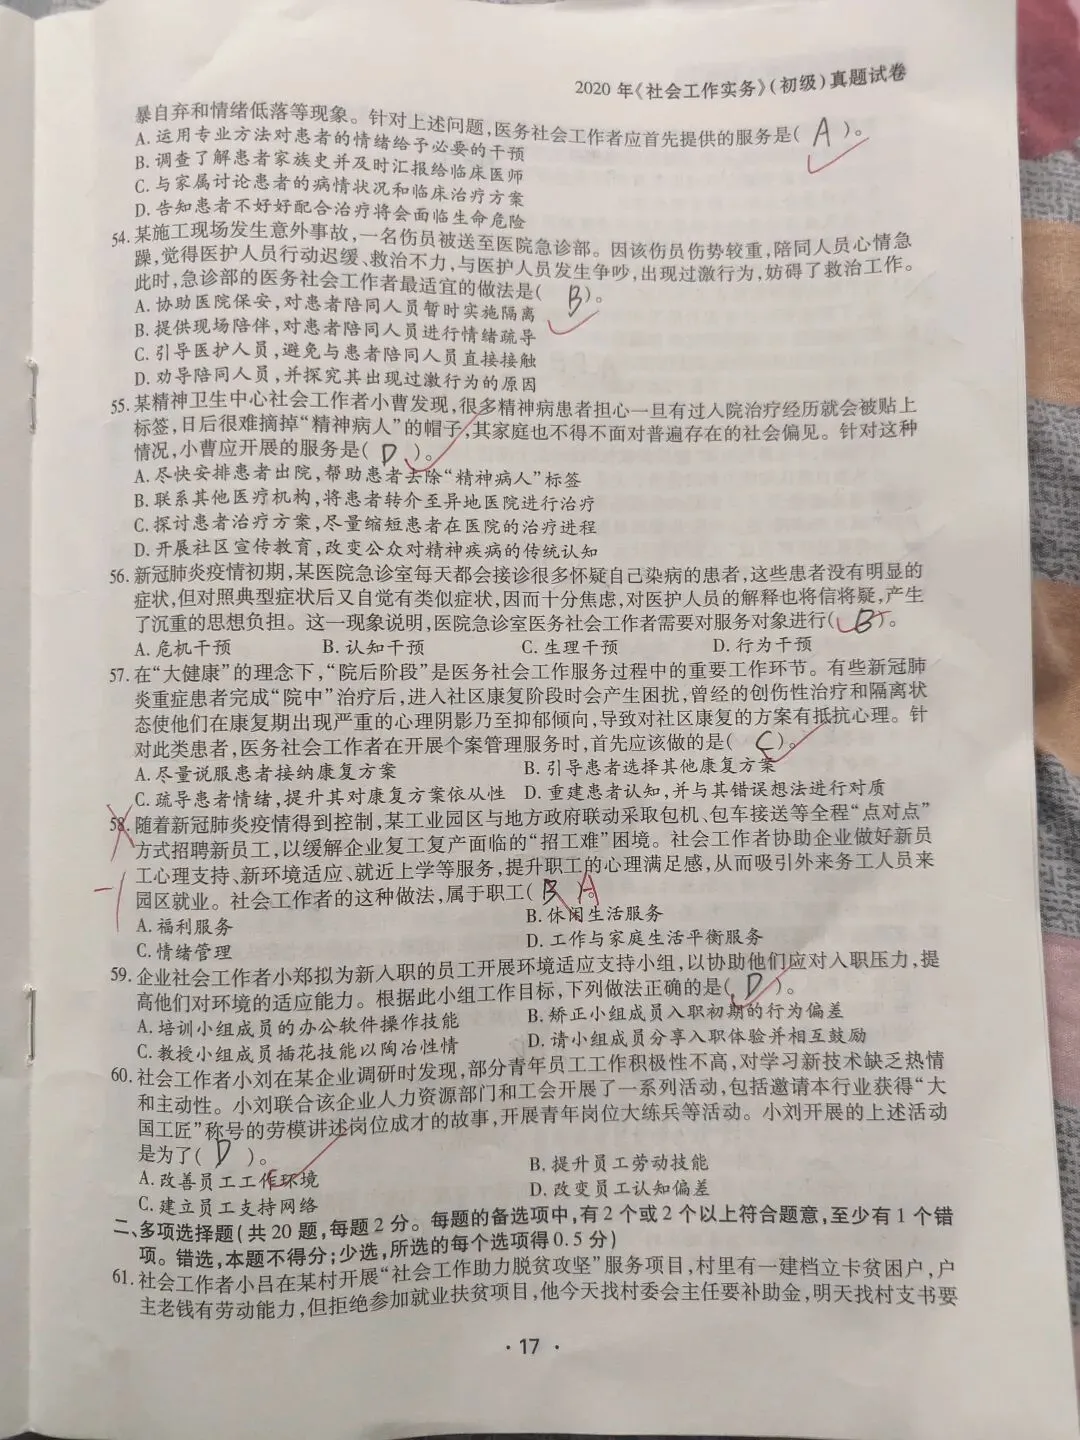 2020 年《社会工作实务》(初级)真题试卷
暴自弃和情绪低落等现象。针对上述问题,医务社会工作者应首先提供的服务是( A )。
A. 运用专业方法对患者的情绪给予必要的干预
B. 调查了解患者家族史并及时汇报给临床医师
C. 与家属讨论患者的病情状况和临床治疗方案
D. 告知患者不好好配合治疗将会面临生命危险
54. 某施工现场发生意外事故,一名伤员被送至医院急诊部。因该伤员伤势较重,陪同人员心情急
躁,觉得医护人员行动迟缓、救治不力,与医护人员发生争吵,出现过激行为,妨碍了救治工作。
此时,急诊部的医务社会工作者最适宜的做法是( B )。
A. 协助医院保安,对患者陪同人员暂时实施隔离
B. 提供现场陪伴,对患者陪同人员进行情绪疏导
C. 引导医护人员,避免与患者陪同人员直接接触
D. 劝导陪同人员,并探究其出现过激行为的原因
55. 某精神卫生中心社会工作者小曹发现,很多精神病患者担心一旦有过入院治疗经历就会被贴上
标签,日后很难摘掉“精神病人”的帽子,其家庭也不得不面对普遍存在的社会偏见。针对这种
情况,小曹应开展的服务是( D )。
A. 尽快安排患者出院,帮助患者去除“精神病人”标签
B. 联系其他医疗机构,将患者转介至异地医院进行治疗
C. 探讨患者治疗方案,尽量缩短患者在医院的治疗进程
D. 开展社区宣传教育,改变公众对精神疾病的传统认知
56. 新冠肺炎疫情初期,某医院急诊室每天都会接诊很多怀疑自己染病的患者,这些患者没有明显的
症状,但对照典型症状后又自觉有类似症状,因而十分焦虑,对医护人员的解释也将信将疑,产生
了沉重的思想负担。这一现象说明,医院急诊室医务社会工作者需要对服务对象进行( B )。
A. 危机干预 B. 认知干预 C. 生理干预 D. 行为干预
57. 在“大健康”的理念下,“院后阶段”是医务社会工作服务过程中的重要工作环节。有些新冠肺
炎重症患者完成“院中”治疗后,进入社区康复阶段时会产生困扰,曾经的创伤性治疗和隔离状
态使他们在康复期出现严重的心理阴影乃至抑郁倾向,导致对社区康复的方案有抵抗心理。针
对此类患者,医务社会工作者在开展个案管理服务时,首先应该做的是( C )。
A. 尽量说服患者接纳康复方案 B. 引导患者选择其他康复方案
C. 疏导患者情绪,提升其对康复方案依从性 D. 重建患者认知,并与其错误想法进行对质
58. 随着新冠肺炎疫情得到控制,某工业园区与地方政府联动采取包机、包车接送等全程“点对点”
方式招聘新员工,以缓解企业复工复产面临的“招工难”困境。社会工作者协助企业做好新员
工心理支持、新环境适应、就近上学等服务,提升职工的心理满足感,从而吸引外来务工人员来
-1 园区就业。社会工作者的这种做法,属于职工( B )。A
A. 福利服务 B. 休闲生活服务
C. 情绪管理 D. 工作与家庭生活平衡服务
59. 企业社会工作者小郑拟为新入职的员工开展环境适应支持小组,以协助他们应对入职压力,提
高他们对环境的适应能力。根据此小组工作目标,下列做法正确的是( D )。
A. 培训小组成员的办公软件操作技能 B. 矫正小组成员入职初期的行为偏差
C. 教授小组成员插花技能以陶冶性情 D. 请小组成员分享入职体验并相互鼓励
60. 社会工作者小刘在某企业调研时发现,部分青年员工工作积极性不高,对学习新技术缺乏热情
和主动性。小刘联合该企业人力资源部门和工会开展了一系列活动,包括邀请本行业获得“大
国工匠”称号的劳模讲述岗位成才的故事,开展青年岗位大练兵等活动。小刘开展的上述活动
是为了( D )。
A. 改善员工工作环境 B. 提升员工劳动技能
C. 建立员工支持网络 D. 改变员工认知偏差
二、多项选择题(共 20 题,每题 2 分。每题的备选项中,有 2 个或 2 个以上符合题意,至少有 1 个错
项。错选,本题不得分;少选,所选的每个选项得 0.5 分)
61. 社会工作者小吕在某村开展“社会工作助力脱贫攻坚”服务项目,村里有一建档立卡贫困户,户
主老钱有劳动能力,但拒绝参加就业扶贫项目,他今天找村委会主任要补助金,明天找村支书要
· 17 ·